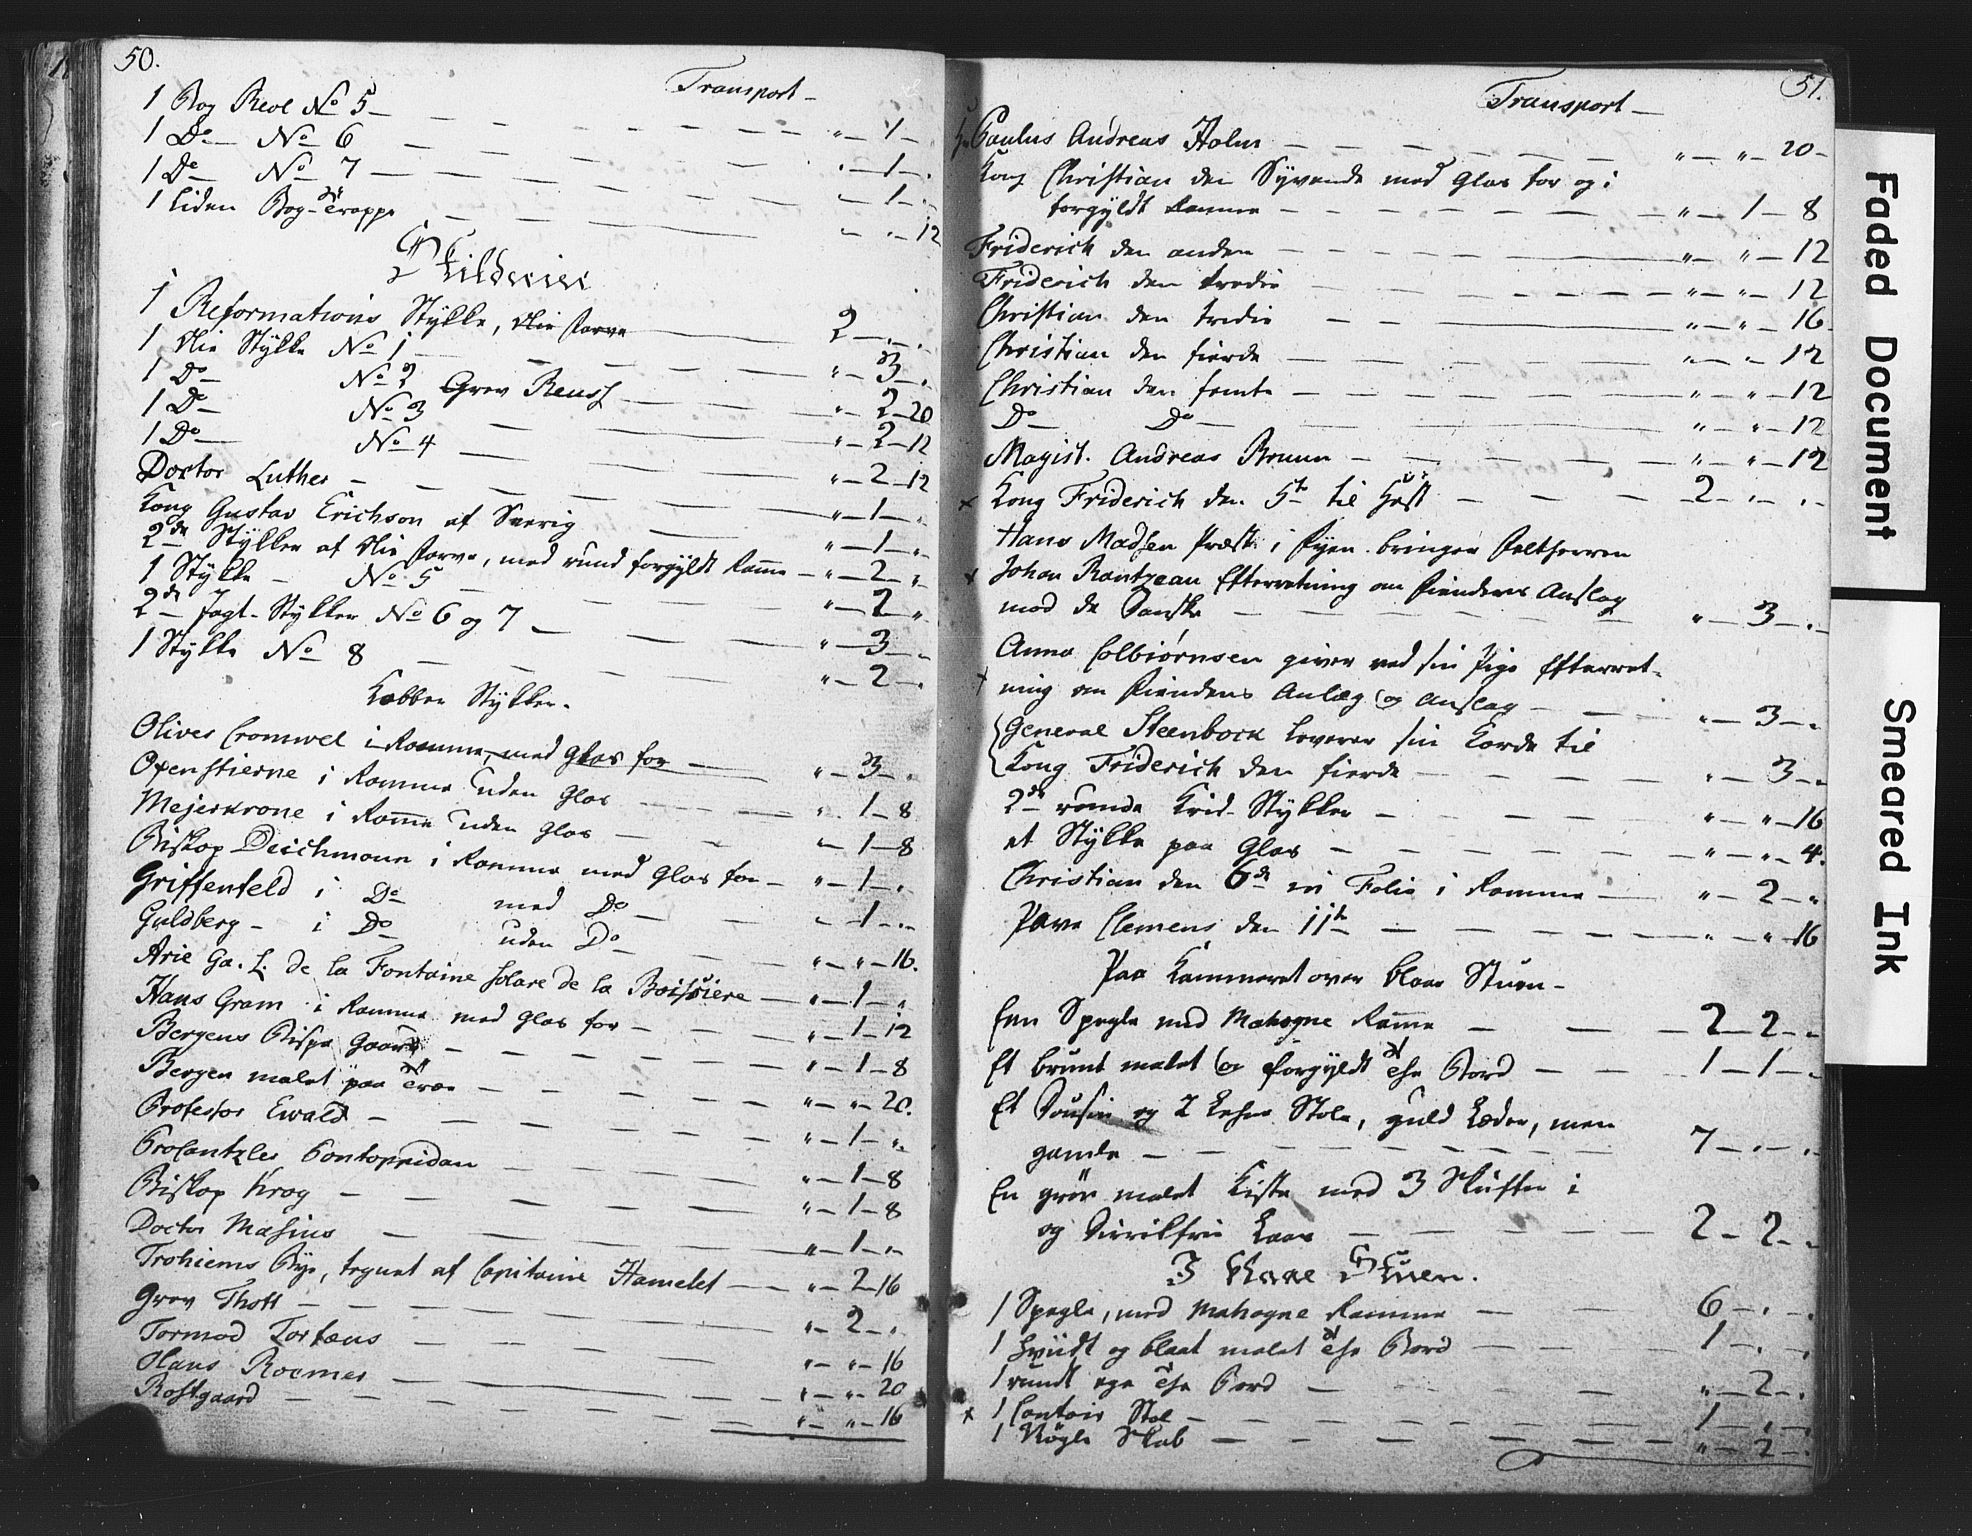 50.
Transport
1 Bog Reol No 5 " 1 "
1 Do No 6 " 1 "
1 Do No 7 " 1 "
1 liden Bog-Trappe " " 12
Skilderier
1 Reformations Stykke, Olie farve 2 " "
1 Olie Stykke No 1 " 3 "
1 Do No 2 Grev Reuss " 2 20
1 Do No 3 " 2 12
1 Do No 4 " 2 12
Doctor Luther " 1 "
Kong Gustav Erichson af Sverig " 1 "
2de Stykker af Olie farve, med rund forgyldt Ramme " 2 "
1 Stykke No 5 " 2 "
2de Jagt-Stykker No 6 og 7 " 3 "
1 Stykke No 8 " 2 "
Kobber Stykker.
Oliver Cromwel i Ramme, med Glas for " 3 "
Oxenstierne i Ramme uden Glas " 1 8
Mejerkrone i Ramme uden Glas " 1 8
Biskop Deichmann i Ramme med Glas for " 1 "
Griffenfeld i Do med Do " 1 "
Guldberg i Do uden Do " " 16.
Arie Ga. L. de la Fontaine Solare de la Boissiere " 1 "
Hans Gram i Ramme med Glas for " 1 12
Bergens Bispe Gaard " 1 8
Bergen malet paa Træe " " 20.
Professor Ewald " 1 "
Procantzler Pontoppidan " 1 8
Biskop Krog " 1 8
Doctor Masius " 1 "
Trohiems Bye, tegnet af Capitaine Hamelet " 2 16
Grev Thott " 2 "
Tormod Torfæus " " 16
Olaus Roemer " " 20
Rostgaard " " 16
51.
Transport
Hr Paulus Andreas Holm " " 20
Kong Christian den Syvende med Glas for og i
forgyldt Ramme " 1 8
Friderich den anden " " 12
Friderich den tredie " " 12
Christian den tredie " " 16
Christian den fierde " " 12
Christian den femte " " 12
Do Do " " 12
Magist. Andreas Bruun " " 12
x Kong Friderich den 5te til Hest 2 " "
Hans Madsen Præst i Fyen bringer Feltherren
x Johan Rantzeau Efterretning om Fiendens Anslag
mod de Danske " 3 "
Anna Colbiørnsen giver ved sin Pige Efterret-
x ning om Fiendens Anlæg og Anslag " 3 "
General Steenbock leverer sin Korde til
Kong Friderich den fierde " 3 "
2de runde Krid-Stykker " " 16
et Stykke paa Glas " " 4.
Christian den 6te in Folio i Ramme " 2 "
Pave Clemens den 11te " " 16
Paa Kammeret over blaae Stuen
Een Spegle med Mahogne Ramme 2 2 "
Et brunt malet og forgyldt The Bord 1 1 "
Et Dousin og 2 Lehne Stole, guld Læder, men
gamle 7 " "
En grøn malet Kiste med 3 Skuffer i
og Laas 2 2 "
I blaae Stuen.
1 Spegle, med Mahogne Ramme 6 " "
1 hviidt og blaat malet The Bord 1 " "
1 rundt ege The Bord " 2 "
x 1 Contoir Stol 1 " "
1 Nøgle Skab " 2 "
Faded Document
Smeared Ink